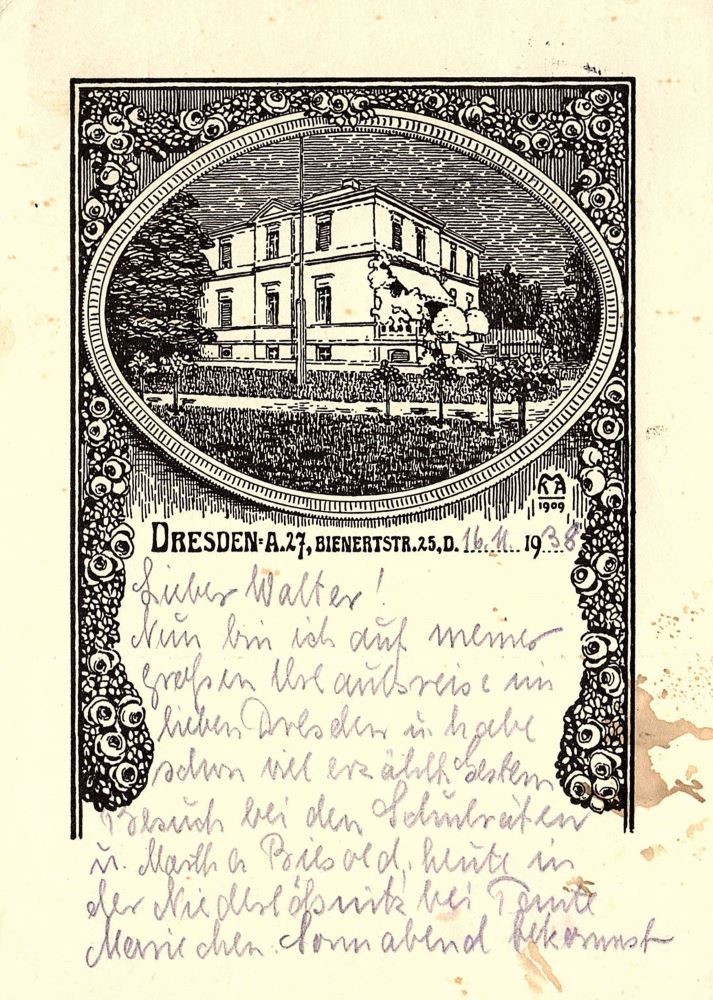 KA
1909
DRESDEN-A.27, BIENERTSTR.25, D. 16.11. 1938
Lieber Walter!
Nun bin ich auf meiner
großen Urlaubsreise im
lieben Dresden u. habe
schon viel erzählt. Gestern
Besuch bei den Schulräten
u. Martha Biesold, heute in
der Niederlößnitz bei Tante
Mariechen. Sonnabend bekommst